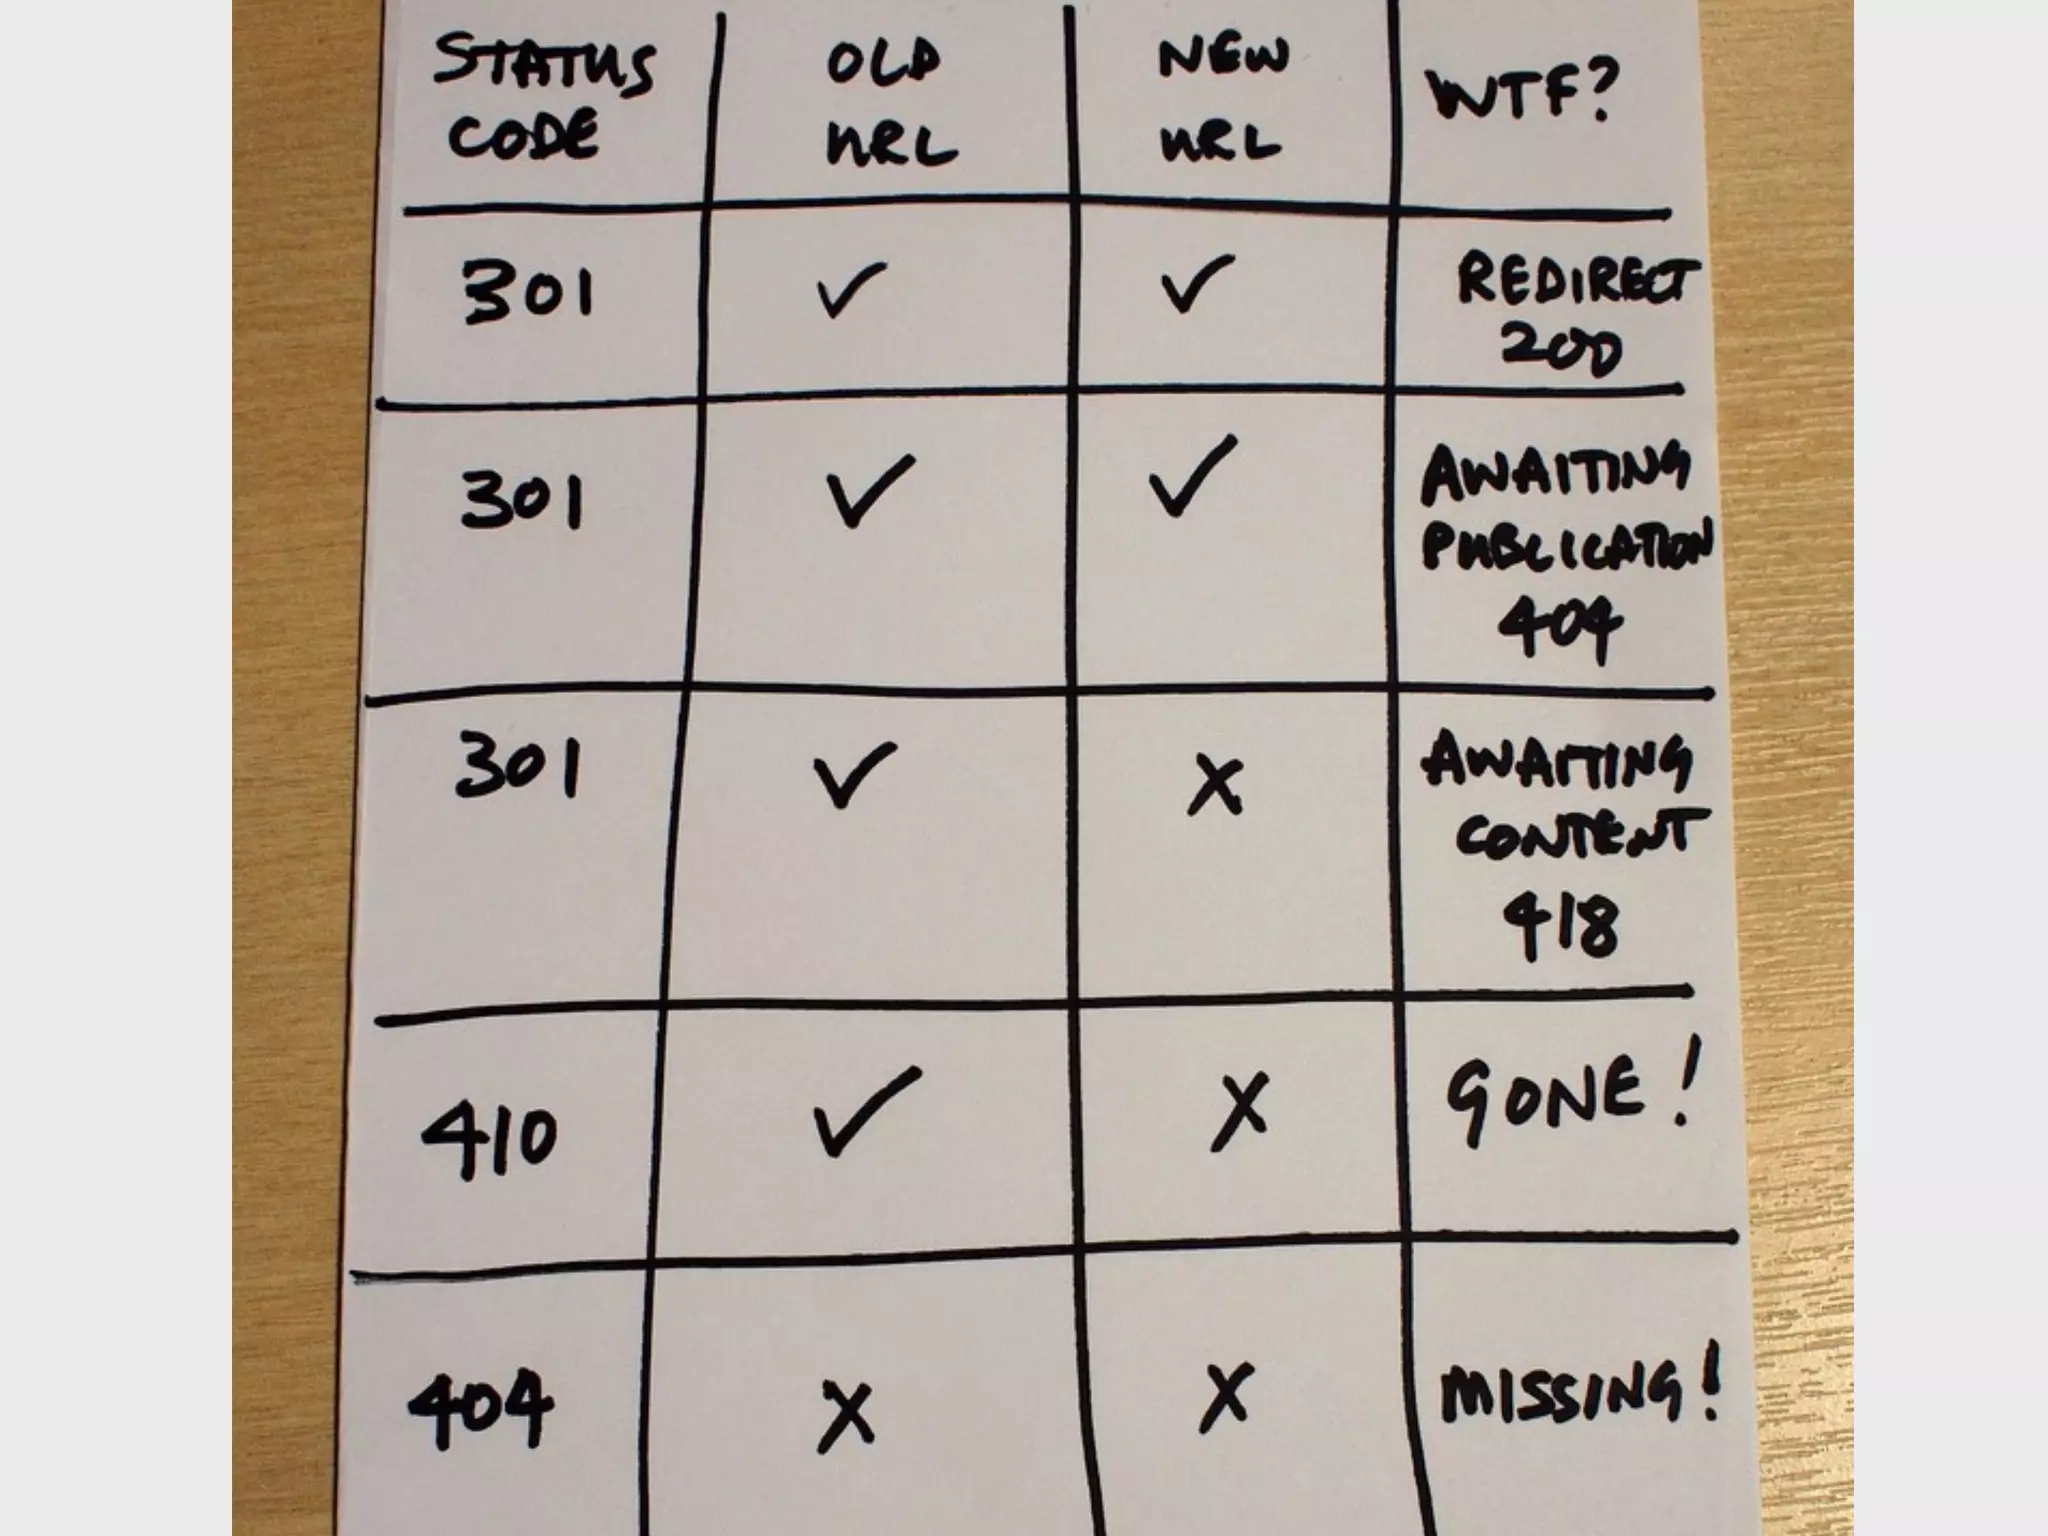 STATUS CODE | OLD URL | NEW URL | WTF?
301 | ✓ | ✓ | REDIRECT 200
301 | ✓ | ✓ | AWAITING PUBLICATION 404
301 | ✓ | X | AWAITING CONTENT 418
410 | ✓ | X | GONE!
404 | X | X | MISSING!